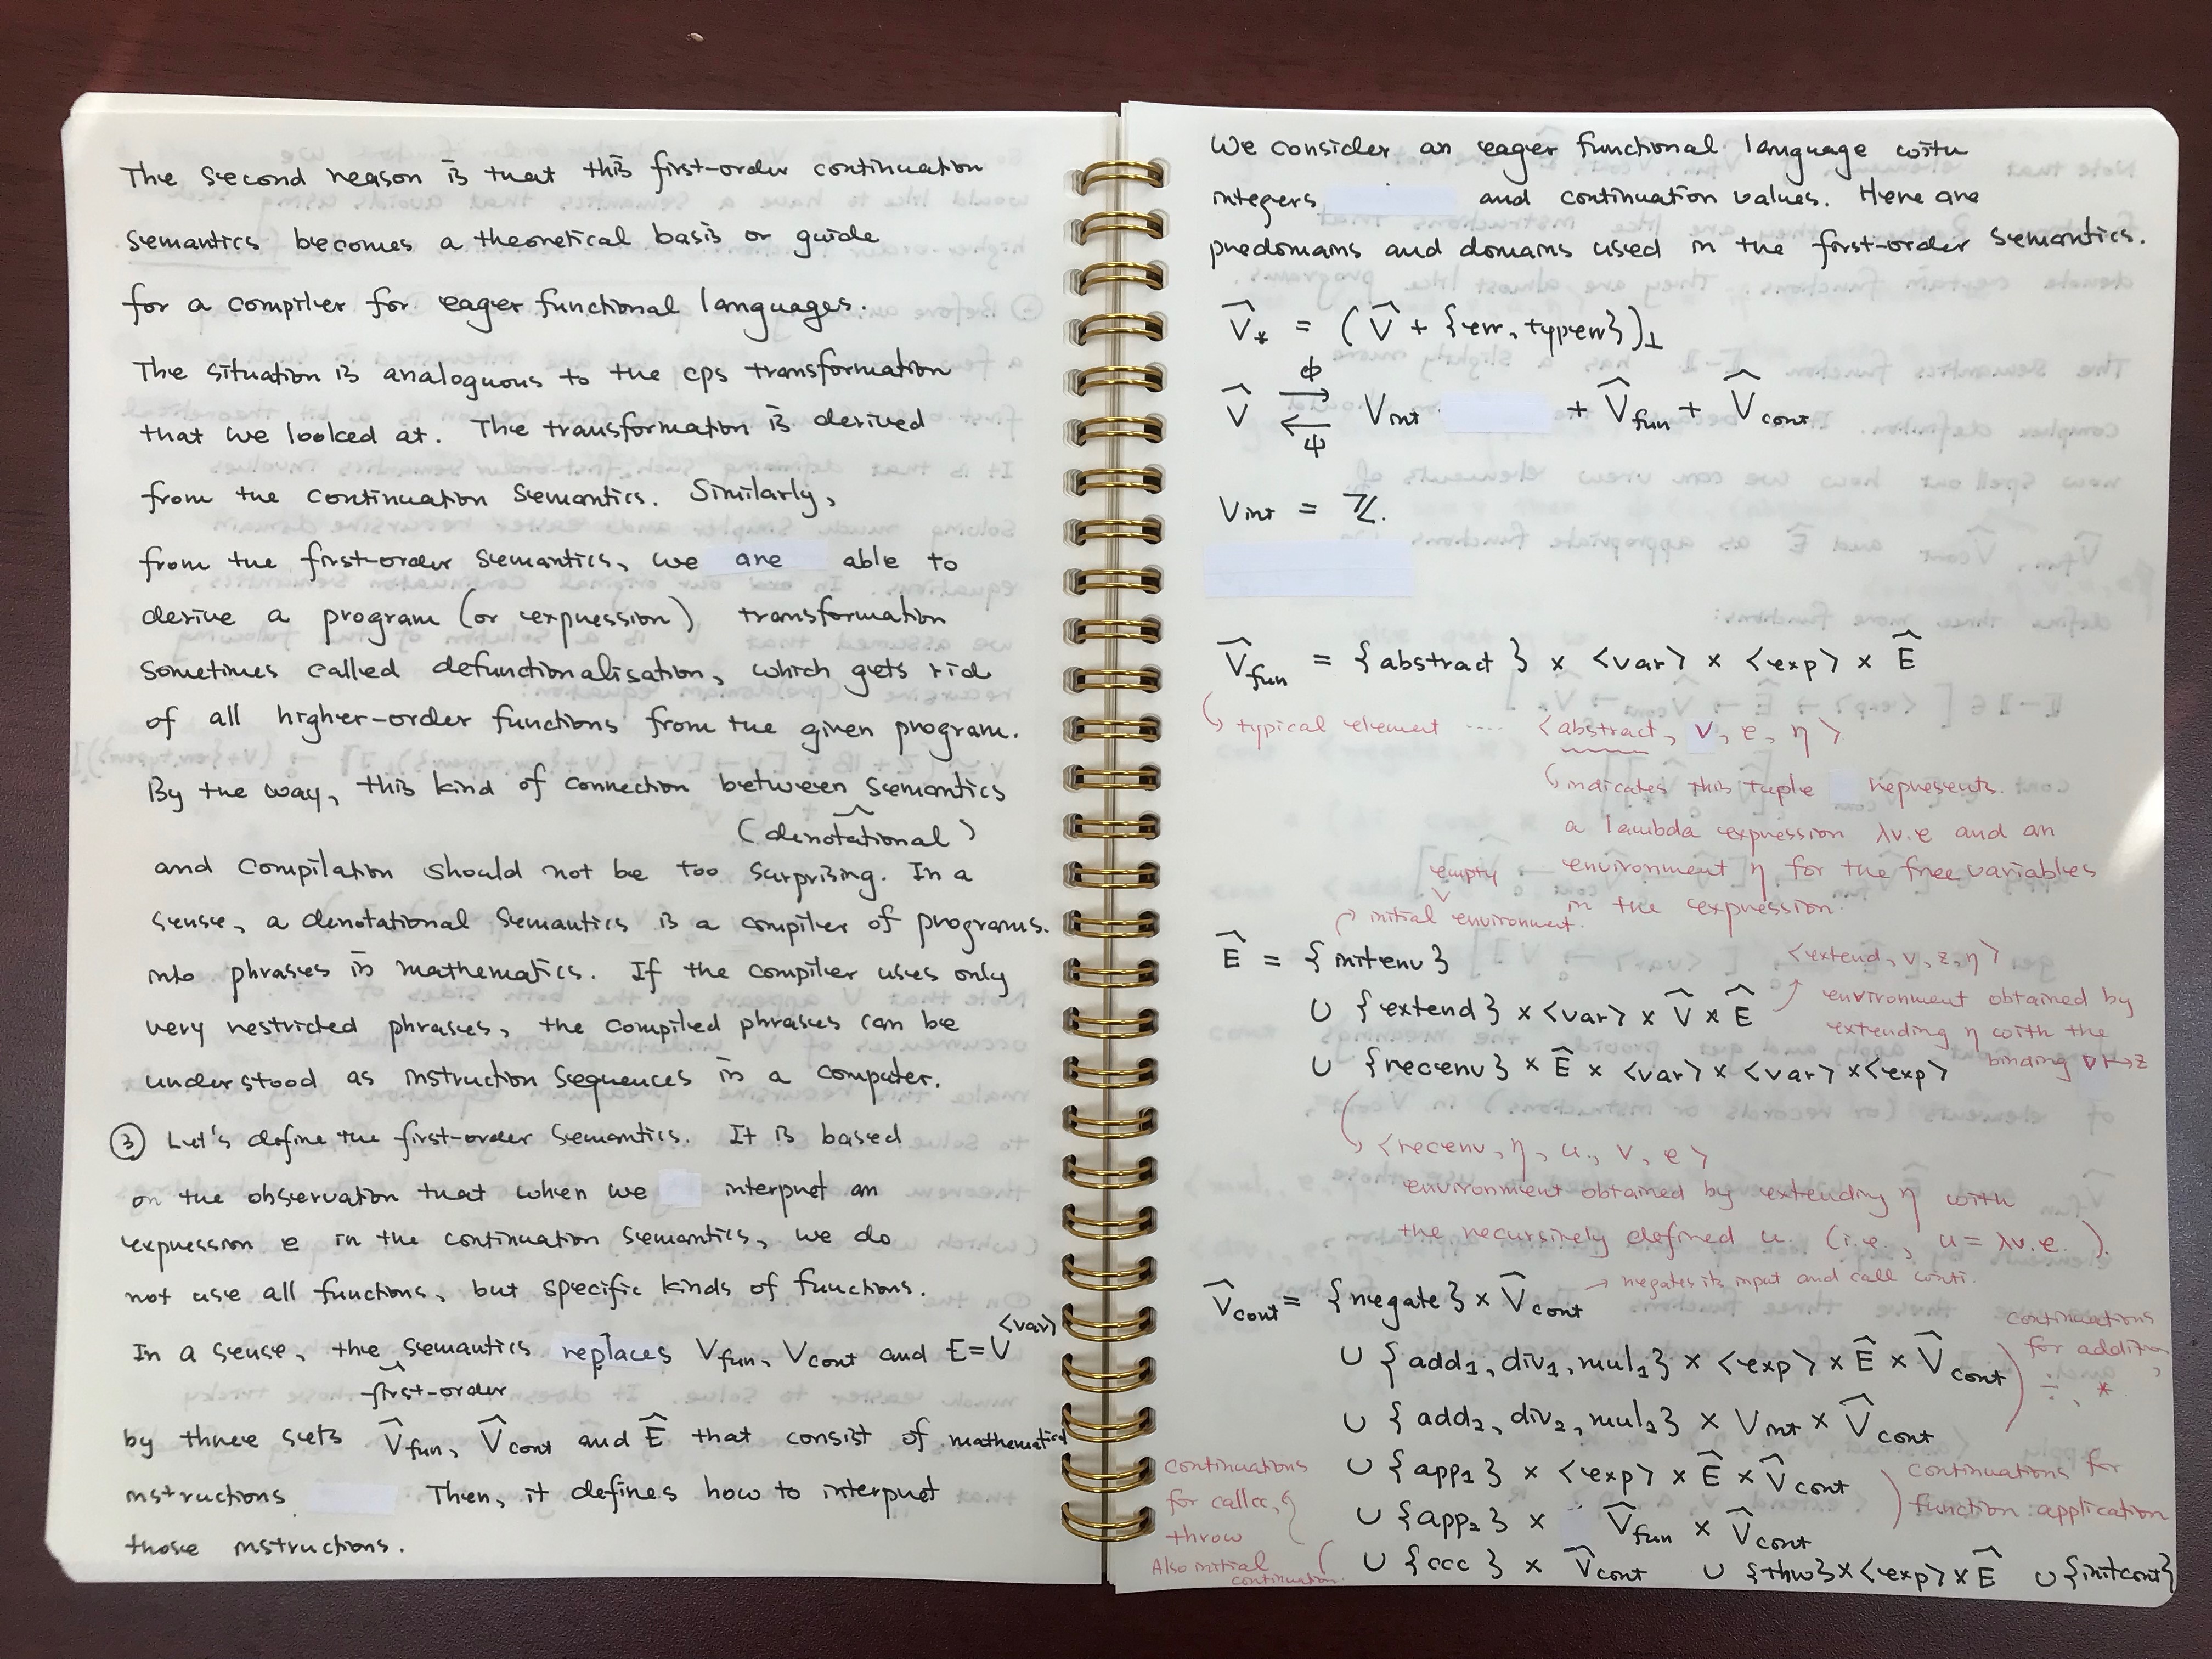 The second reason is that this first-order continuation
semantics becomes a theoretical basis or guide
for a compiler for eager functional languages.
The situation is analoguous to the cps transformation
that we looked at. The transformation is derived
from the continuation semantics. Similarly,
from the first-order semantics, we are able to
derive a program (or expression) transformation
sometimes called defunctionalisation, which gets rid
of all higher-order functions from the given program.
By the way, this kind of connection between semantics
(denotational)
and compilation should not be too surprising. In a
sense, a denotational semantics is a compiler of programs.
into phrases in mathematics. If the compiler uses only
very restricted phrases, the compiled phrases can be
understood as instruction sequences in a computer.
③ Let's define the first-order semantics. It is based
on the observation that when we interpret an
expression e in the continuation semantics, we do
not use all functions, but specific kinds of functions.
In a sense, the semantics replaces V_fun, V_cont and E = V^<var>
first-order
by three sets V̂_fun, V̂_cont and Ê that consist of mathematical
instructions Then, it defines how to interpret
those instructions.
We consider an eager functional language with
integers and continuation values. Here are
predomains and domains used in the first-order semantics.
V̂_* = (V̂ + {err, typerr})_⊥
V̂ ⇄ V_int + V̂_fun + V̂_cont
ϕ
ψ
V_int = ℤ.
V̂_fun = {abstract} × <var> × <exp> × Ê
typical element ---- <abstract, v, e, η>
indicates this tuple represents.
a lambda expression λv.e and an
environment η for the free variables
in the expression.
empty
initial environment.
Ê = {initenv}
<extend, v, z, η>
∪ {extend} × <var> × V̂ × Ê
environment obtained by
extending η with the
binding v ↦ z
∪ {recenv} × Ê × <var> × <var> × <exp>
<recenv, η, u, v, e>
environment obtained by extending η with
the recursively defined u. (i.e., u = λv.e.).
V̂_cont = {negate} × V̂_cont
→ negates its input and call conti.
∪ {add₁, div₁, mul₁} × <exp> × Ê × V̂_cont
continuations
for addition,
and
÷, *
∪ {add₂, div₂, mul₂} × V_int × V̂_cont
∪ {app₁} × <exp> × Ê × V̂_cont
∪ {app₂} × V̂_fun × V̂_cont
continuations for
function application
continuations
for callcc,
throw
Also initial
continuation.
∪ {ccc} × V̂_cont ∪ {thw} × <exp> × Ê ∪ {initcont}